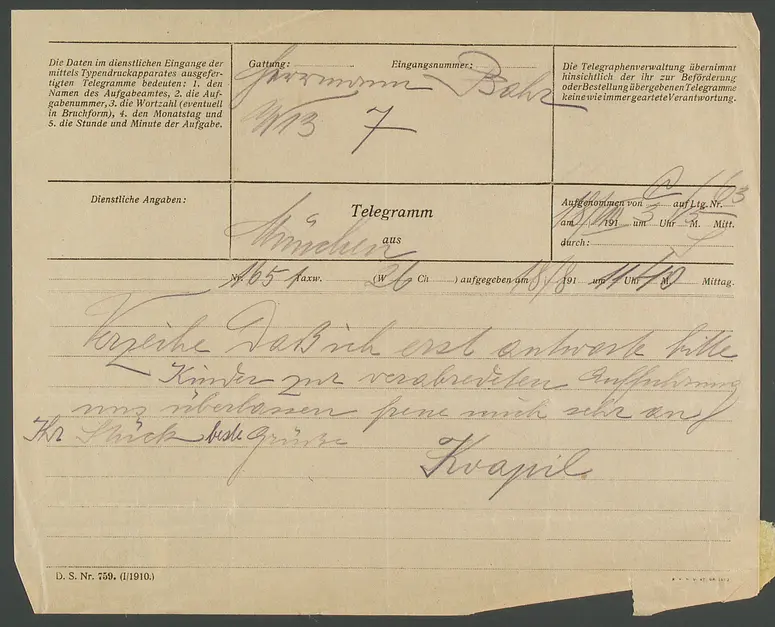 Die Daten im dienstlichen Eingange der
mittels Typendruckapparates ausgefer-
tigten Telegramme bedeuten: 1. den
Namen des Aufgabeamtes, 2. die Auf-
gabenummer, 3. die Wortzahl (eventuell
in Bruchform), 4. den Monatstag und
5. die Stunde und Minute der Aufgabe.
Gattung: Eingangsnummer:
Herrmann Bahr
W 13 7
Die Telegraphenverwaltung übernimmt
hinsichtlich der ihr zur Beförderung
oder Bestellung übergebenen Telegramme
keine wie immer geartete Verantwortung.
Dienstliche Angaben:
Telegramm
aus
München
Aufgenommen von auf Ltg. Nr. 63
am 18/ 191 um 3 Uhr M. Mitt.
durch:
Nr. 1651 Taxw. (W 26 Ch ) aufgegeben am 18/8 191 um 11 Uhr 40 M. Mittag.
Verzeihe Daß ich erst antworte bitte
Kinder zur verabredeten Aufführung
uns überlassen freue mich sehr auf
Ihr Stück beste Grüße
Kvapil
D. S. Nr. 759. (I/1910.)